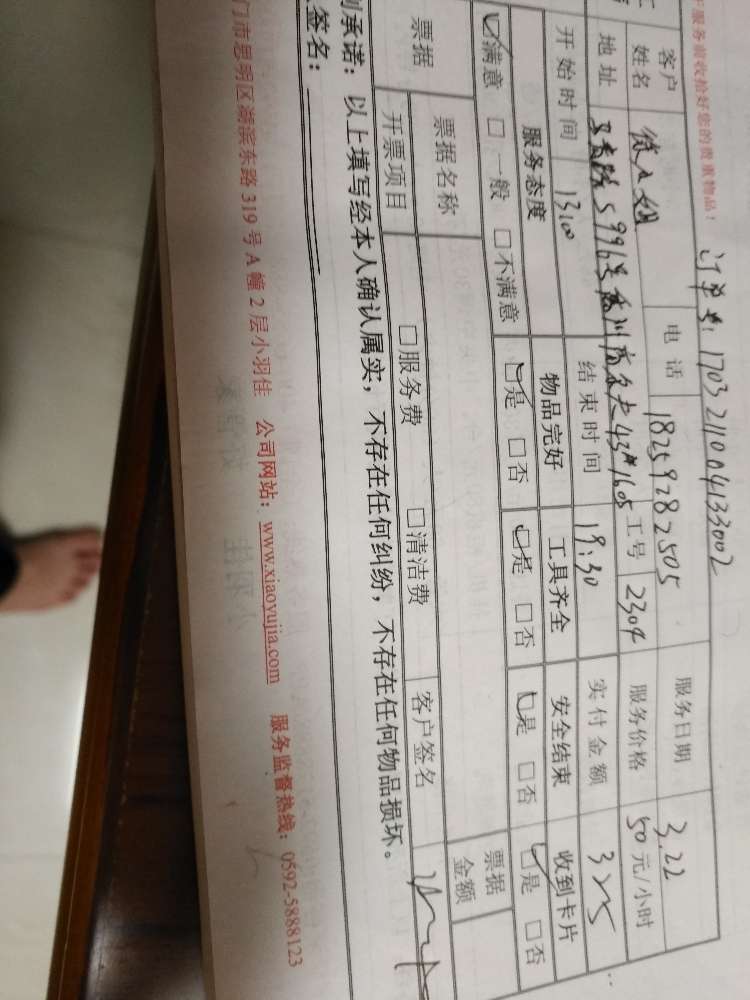 服务前收拾好您的贵重物品!
订单号: 1703211004133002
客户姓名 电话 18259282505 服务日期 3.22
地址 5996号 43#1605 工号 2304 服务价格 50元/小时
开始时间 13:00 结束时间 19:30 实付金额 325
服务态度 物品完好 工具齐全 安全结束 收到卡片
☑满意 □一般 □不满意 ☑是 □否 ☑是 □否 ☑是 □否 ☑是 □否
票据 票据名称 票据金额
开票项目 □服务费 □清洁费 客户签名
承诺：以上填写经本人确认属实，不存在任何纠纷，不存在任何物品损坏。
签名：
门市思明区湖滨东路 319 号 A 幢 2 层小羽佳 公司网站：www.xiaoyujia.com 服务监督热线：0592-5888123